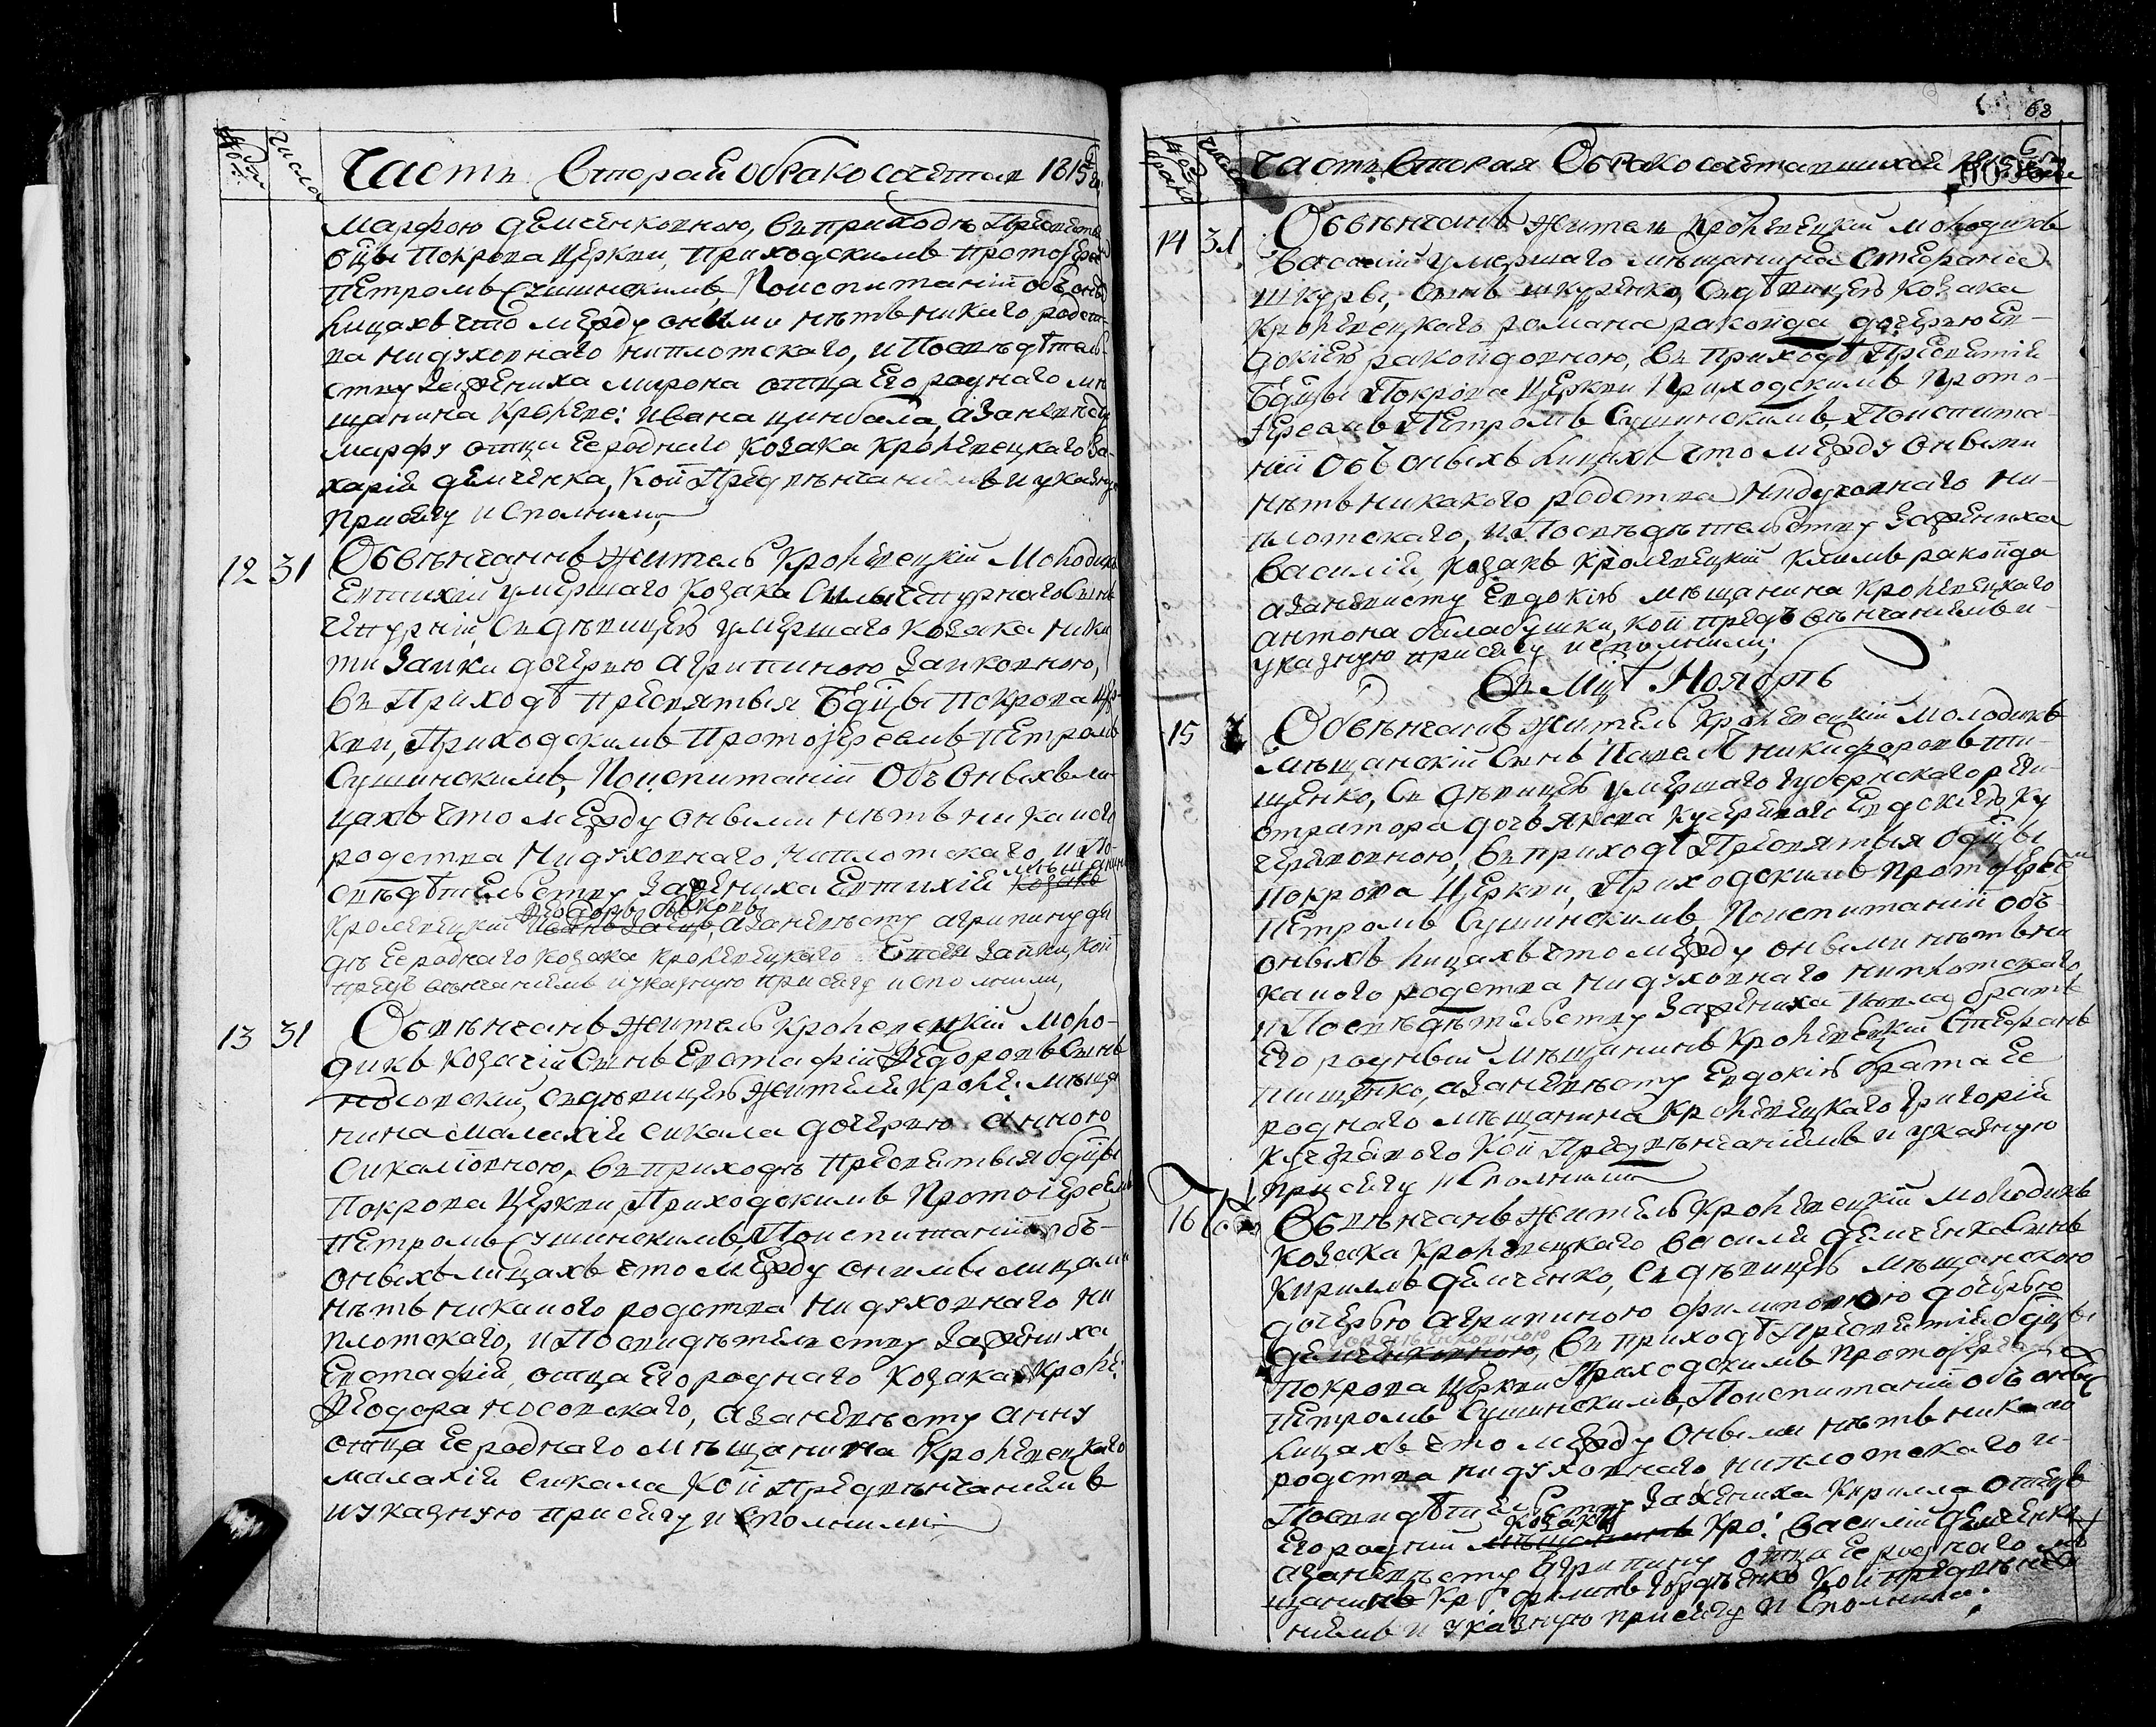 числа
Часть Вторая о бракосочетав 1815
Марфою демченковною, въ приходѣ Пресвет
бцы Покрова Церкви, приходскимъ протоіере
Петромъ Сушинскимъ, Поиспитаніи объ оныхъ
лицахъ что между оними нѣтъ никаго родст-
ва нидуховнаго ниплотскаго, и Посвѣдѣтель-
ству зажениха мирона отца Его роднаго мѣ
щанина Кролеве: ивана цинбала, азаневесту
марфу отца Ее роднаго Козака Кролевецкаго За-
харія демченка, Кои Предвѣнчаніемъ и указную
Присягу исполнили,
12 31 Обвѣнчаннъ житель Кролевецкій Молодикъ
Евтихій умершаго Козака Силы Чепурнаго Сынъ
Чепурній, Сдѣвицею умершаго Козака Ники
ти Заики дочерью агрипиною Заиковною,
въ Приходѣ пресвятыя Бдцы Покрова Цер-
кви, Приходскимъ Протоіереемъ Петромъ
Сушинскимъ, Поиспитаніи Объ Оныхъ ли-
цахъ что между оными нѣтъ никакого
родства Нидуховнаго ниплотскаго, и По-
свѣдѣтельству зажениха Евтихія козакъ мѣщанинъ
Кролевецкій Феодоръ быковъ, азаневѣсту агрипину дя
дѣ Ее роднаго Козака Кролевецкаго Заики, кои
предъ вѣнчаніемъ иуказную присягу исполнили,
13 31 Обвѣнчанъ житель Кролевецкій Моло-
дикъ Козачій Сынъ Евстафій Федоровъ Сынъ
носовский, Сдѣвицею жителя Кроле: мѣща
нина Малахія сикала дочерью анною
Сикаловною, въ приходѣ пресветыя бдцы
Покрова Церкви, Приходскимъ Протоіереемъ
Петромъ Сушинскимъ, Поиспитаніи объ-
оныхъ лицахъ что между онимы лицами
нѣтъ никакого родства нидуховнаго ни
плотскаго, и Посвидѣтелству зажениха
Евстафія, отца Его роднаго Козака Кроле:
Феодора носовскаго, азаневѣсту анну
отца Ее роднаго мѣщанина Кролевецкаго
малахія сикала Кои Предвѣнчаніемъ
иуказную присягу исполнили
68
числа
Часть Вторая О бракосочетавшихся
14 31 Обвѣнчанъ житель Кролевецкій молодикъ
василій умершаго мѣщанина Стефана
шкуры, Сынъ шкуренко, Сдѣвицею Козака
Кролевецкаго романа ракойда дочерью Ев-
докіею ракойдовною, въ приходѣ Пресветія
Бдцы Покрова Церкви Приходскимъ Прото-
іереемъ Петромъ Сушинскимъ, Поиспита-
ніи Объ оныхъ лицахъ что между оными
нѣтъ никакого родства нидуховнаго ни-
плотскаго, и Посвѣдѣтельству зажениха
Василія, козакъ Кролевецкій Климъ ракойда
азаневисту Евдокію мѣщанина Кролевецкаго
антона балабушки, кои предъ вѣнчаніемъ и-
указную присягу исполнили;
Въ Мцѣ Ноябрѣ
15 Обвѣнчанъ житель Кролевецкій молодикъ
мѣщанскій Сынъ Павелъ никифоровъ ти-
щенко, Сдѣвицею умершаго Губернскаго реги-
стратора дочь якова Кучераваго Евдокіею Ку
черявовною, въ приходѣ Пресвятыя бдцы
покрова Церкви, Приходскимъ Протоіерее
Петромъ Сушинскимъ, Поиспитаніи объ-
оныхъ лицахъ что между оными нѣтъ ни
какого родства нидуховнаго ниплотскаго,
и Посвѣдѣтельству зажениха Павла, братъ
Его родный мѣщанинъ Кролевецкій Стефанъ
тищенко, азаневѣсту Евдокію брата Ее
роднаго мѣщанина Кролевецкаго Григорія
Кучераваго Кои Предвѣнчаніемъ и указную
присягу исполнили
16 Обвѣнчанъ житель Кролевецкій молодикъ
Козака Кролевецкаго василя демченка Сынъ
Кирилъ демченко, Сдѣвицею мѣщанскою
дочерью агрипиною филиповною дочерью
демченковною, въ приходѣ Пресветія бдцы
Покрова Церкви Приходскимъ Протоіере
Петромъ Сушинскимъ, Поиспитаніи объ оныхъ
лицахъ что между Оными нѣтъ никакаго
родства нидуховнаго, ниплотскаго и-
Посвидѣтельству зажениха Кирилла отецъ
Его родний мѣщанинъ козакъ Кро: Василій демченко
азаневѣсту агрипину отца Ее роднаго мѣ
щанинъ Кр: филипъ Кои предвѣнча
ніемъ и указную присягу исполнили;